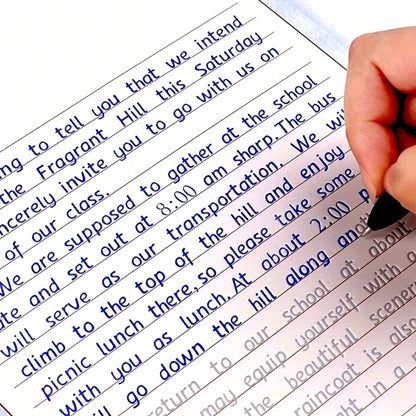 ing to tell you that we intend
the Fragrant Hill this Saturday
ncerely invite you to go with us on
of our class.
We are supposed to gather at the school
te and set out at 8:00 am sharp. The bus
will serve as our transportation. We wi
climb to the top of the hill and enjoy
picnic lunch there, so please take some
with you as lunch. At about 2:00 p
ll go down the hill along anot
return to our school at about
may equip yourself with a
the beautiful scener
raincoat is also
t in a